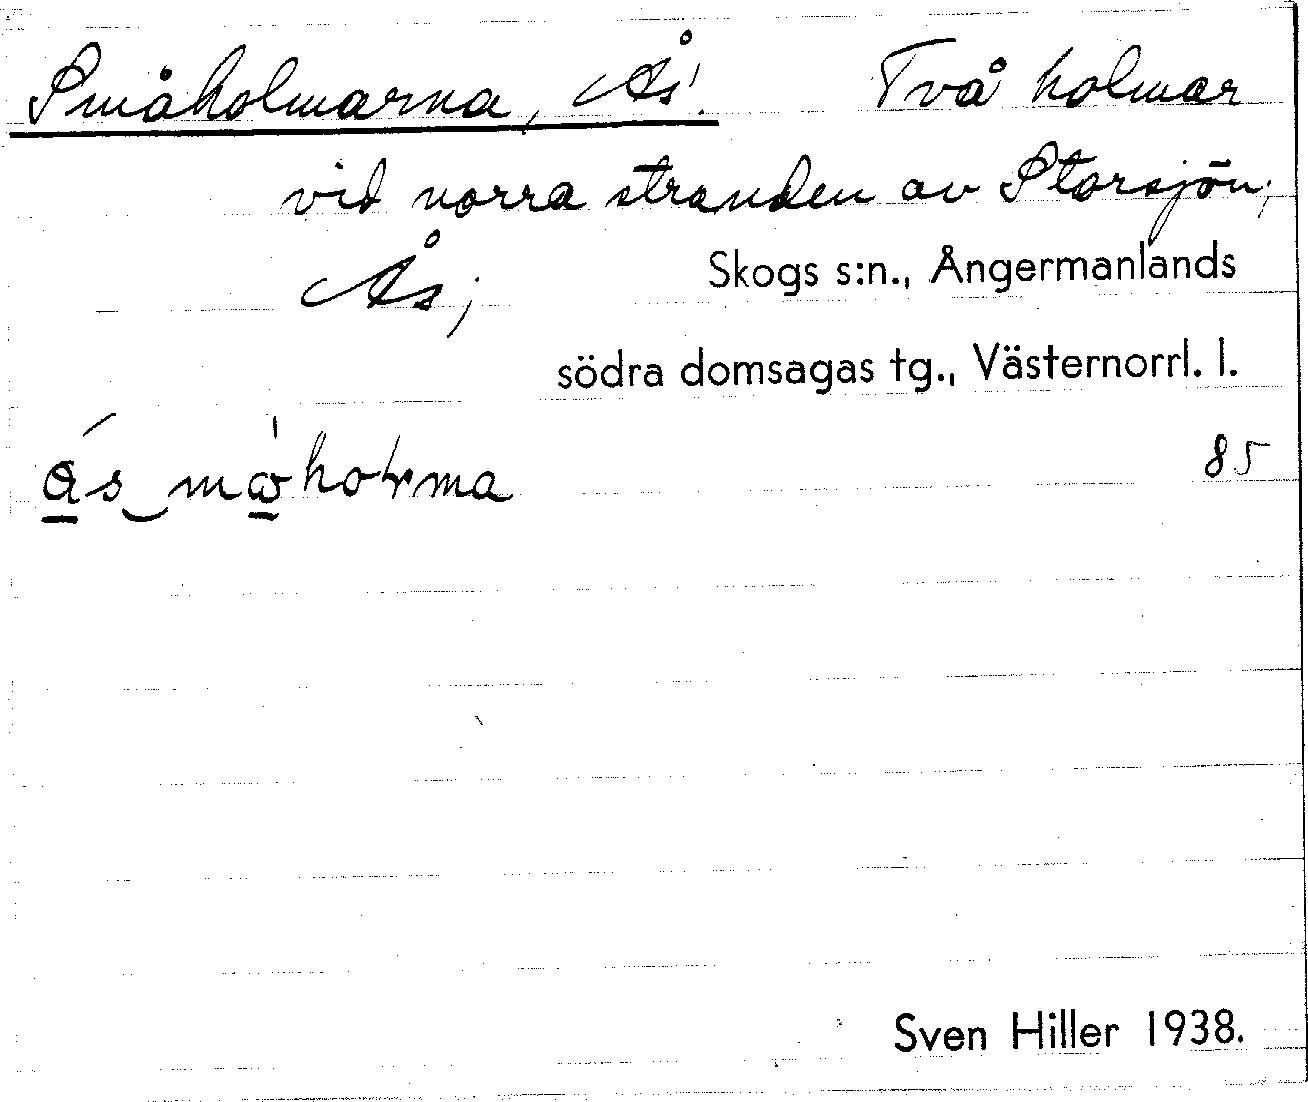 Småholmarna, Ås. Två holmar
vid norra stranden av Storsjön;
Ås; Skogs s:n., Ångermanlands
södra domsagas tg., Västernorrl. l.
85
Sven Hiller 1938.